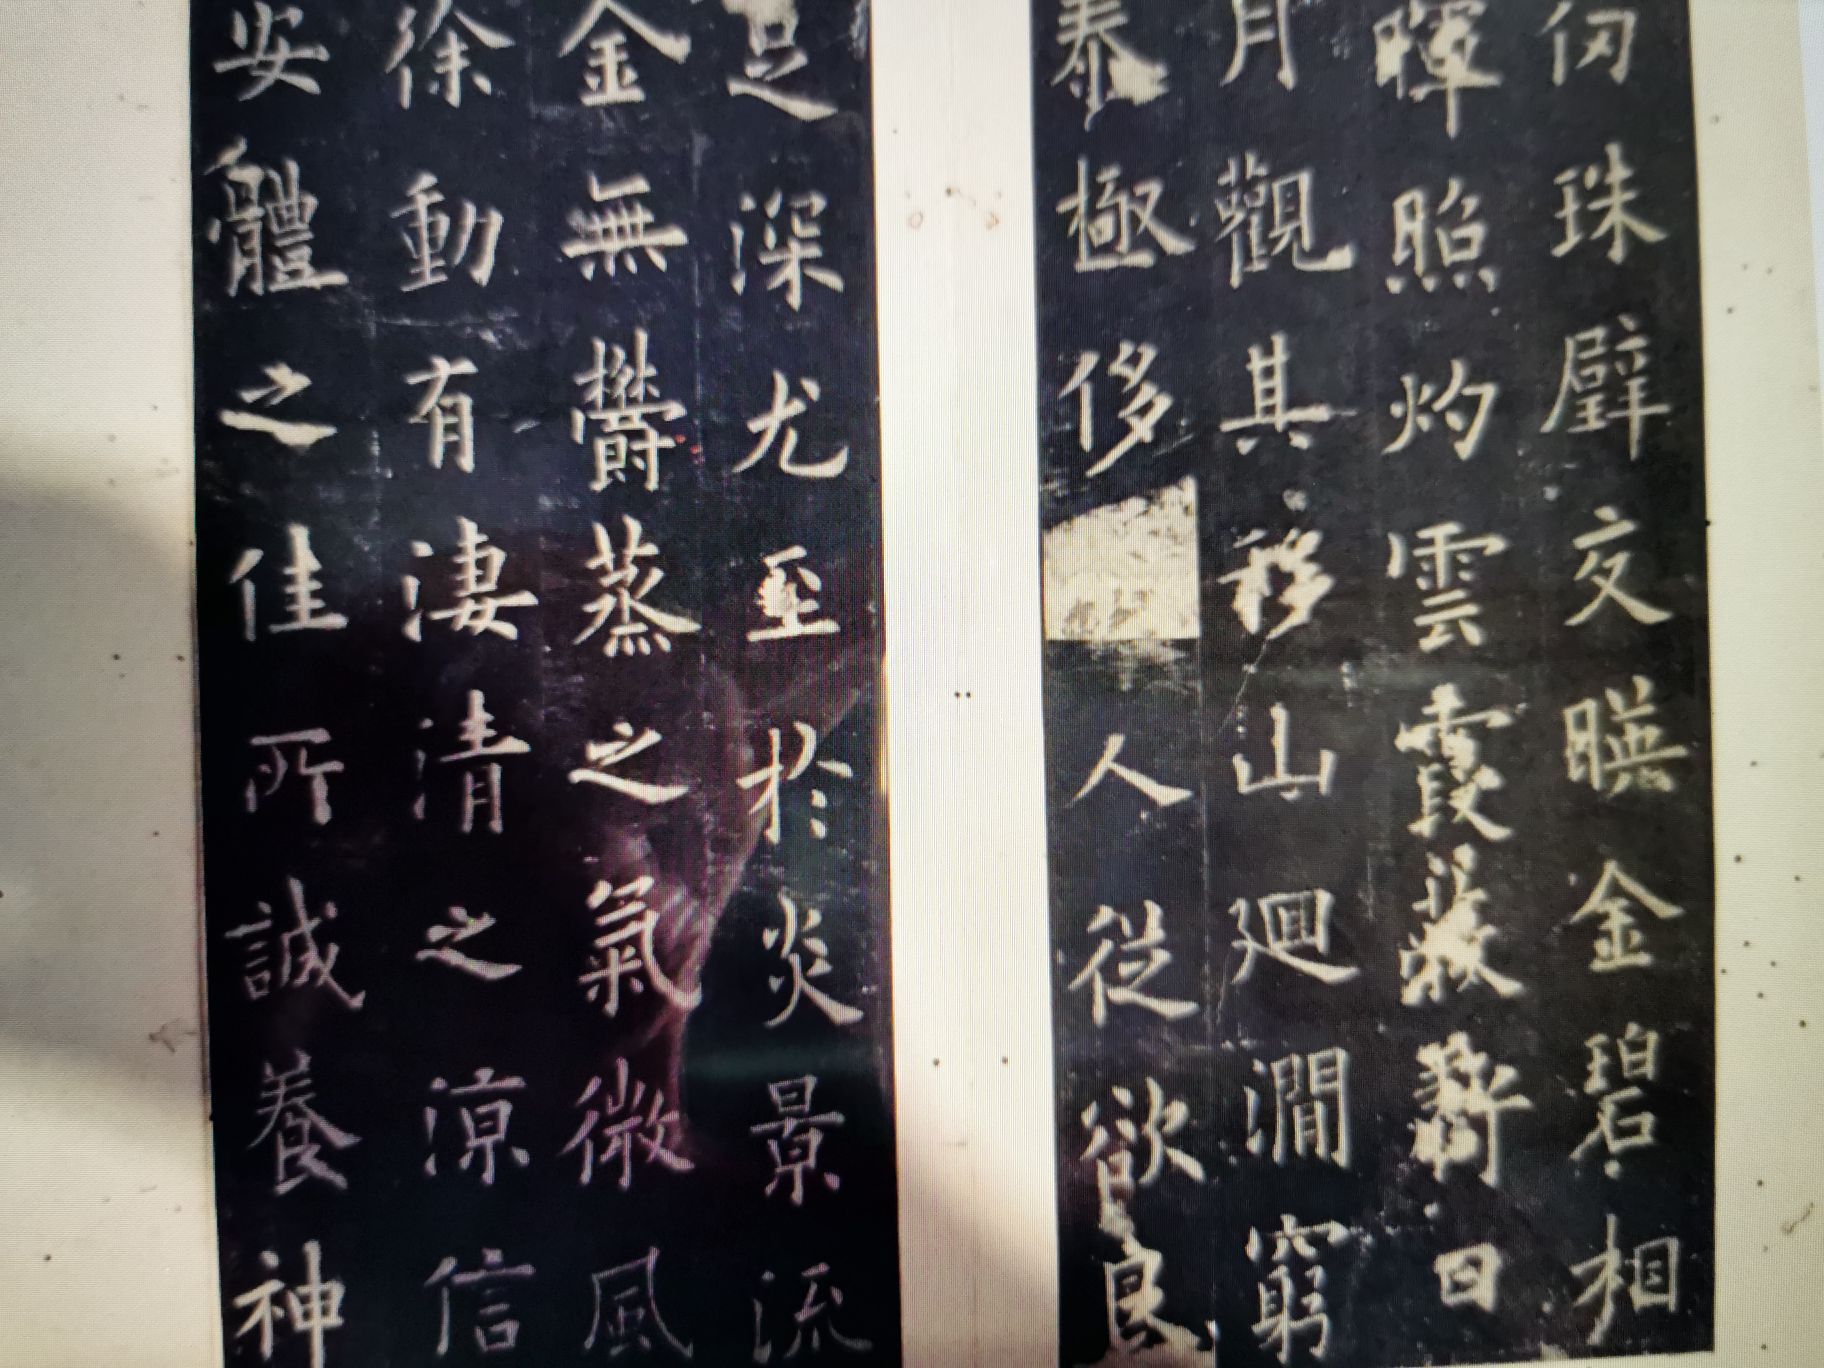 仞珠璧交暎金碧相
暉照灼雲霞蔽虧日
月觀其移山廻澗窮
泰極侈人從欲良
足深尤至於炎景流
金無欝蒸之氣微風
徐動有淒清之涼信
安體之佳所誠養神